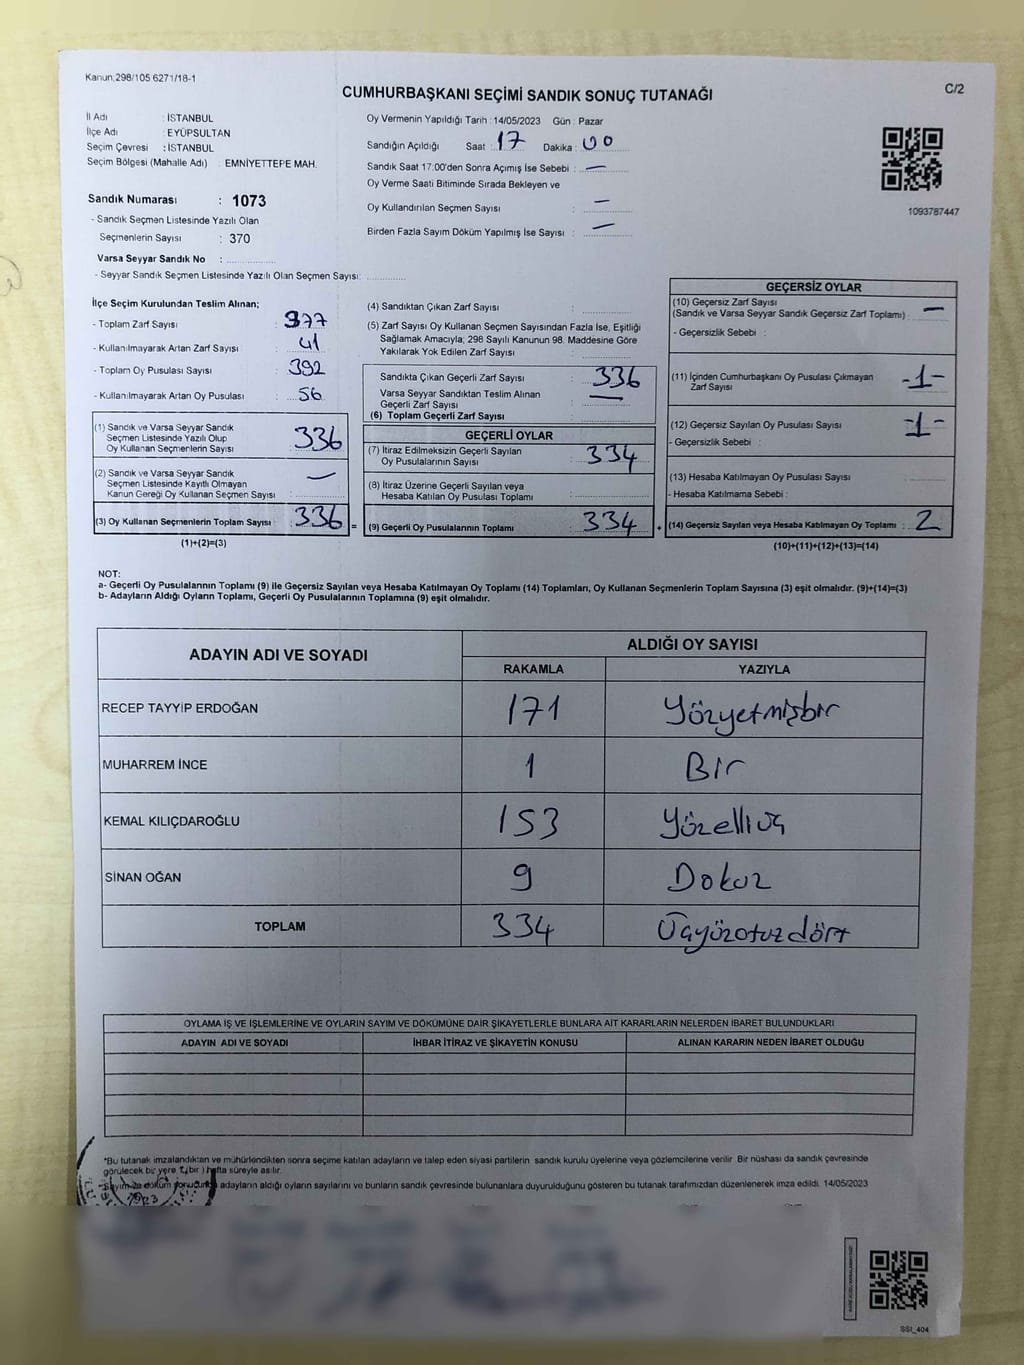 Kanun:298/105 6271/18-1
C/2
CUMHURBAŞKANI SEÇİMİ SANDIK SONUÇ TUTANAĞI
İl Adı : İSTANBUL
İlçe Adı : EYÜPSULTAN
Seçim Çevresi : İSTANBUL
Seçim Bölgesi (Mahalle Adı) : EMNİYETTEPE MAH.
Oy Vermenin Yapıldığı Tarih :14/05/2023 Gün : Pazar
Sandığın Açıldığı Saat : 17 Dakika : 00
Sandık Saat 17:00'den Sonra Açımış İse Sebebi : —
Oy Verme Saati Bitiminde Sırada Bekleyen ve
Oy Kullandırılan Seçmen Sayısı : —
Birden Fazla Sayım Döküm Yapılmış İse Sayısı : —
1093787447
Sandık Numarası : 1073
- Sandık Seçmen Listesinde Yazılı Olan
Seçmenlerin Sayısı : 370
Varsa Seyyar Sandık No :
- Seyyar Sandık Seçmen Listesinde Yazılı Olan Seçmen Sayısı:
İlçe Seçim Kurulundan Teslim Alınan;
- Toplam Zarf Sayısı : 377
- Kullanılmayarak Artan Zarf Sayısı : 41
- Toplam Oy Pusulası Sayısı : 392
- Kullanılmayarak Artan Oy Pusulası : 56
(1) Sandık ve Varsa Seyyar Sandık
Seçmen Listesinde Yazılı Olup
Oy Kullanan Seçmenlerin Sayısı : 336
(2) Sandık ve Varsa Seyyar Sandık
Seçmen Listesinde Kayıtlı Olmayan
Kanun Gereği Oy Kullanan Seçmen Sayısı : —
(3) Oy Kullanan Seçmenlerin Toplam Sayısı : 336 =
(1)+(2)=(3)
(4) Sandıktan Çıkan Zarf Sayısı :
(5) Zarf Sayısı Oy Kullanan Seçmen Sayısından Fazla İse, Eşitliği
Sağlamak Amacıyla; 298 Sayılı Kanunun 98. Maddesine Göre
Yakılarak Yok Edilen Zarf Sayısı :
Sandıkta Çıkan Geçerli Zarf Sayısı : 336
Varsa Seyyar Sandıktan Teslim Alınan
Geçerli Zarf Sayısı : —
(6) Toplam Geçerli Zarf Sayısı :
GEÇERLİ OYLAR
(7) İtiraz Edilmeksizin Geçerli Sayılan
Oy Pusulalarının Sayısı : 334
(8) İtiraz Üzerine Geçerli Sayılan veya
Hesaba Katılan Oy Pusulası Toplamı :
(9) Geçerli Oy Pusulalarının Toplamı : 334 +
GEÇERSİZ OYLAR
(10) Geçersiz Zarf Sayısı
(Sandık ve Varsa Seyyar Sandık Geçersiz Zarf Toplamı) : —
- Geçersizlik Sebebi :
(11) İçinden Cumhurbaşkanı Oy Pusulası Çıkmayan
Zarf Sayısı : -1-
(12) Geçersiz Sayılan Oy Pusulası Sayısı : -1-
- Geçersizlik Sebebi :
(13) Hesaba Katılmayan Oy Pusulası Sayısı :
- Hesaba Katılmama Sebebi :
(14) Geçersiz Sayılan veya Hesaba Katılmayan Oy Toplamı : 2
(10)+(11)+(12)+(13)=(14)
NOT:
a- Geçerli Oy Pusulalarının Toplamı (9) ile Geçersiz Sayılan veya Hesaba Katılmayan Oy Toplamı (14) Toplamları, Oy Kullanan Seçmenlerin Toplam Sayısına (3) eşit olmalıdır. (9)+(14)=(3)
b- Adayların Aldığı Oyların Toplamı, Geçerli Oy Pusulalarının Toplamına (9) eşit olmalıdır.
ADAYIN ADI VE SOYADI
ALDIĞI OY SAYISI
RAKAMLA YAZIYLA
RECEP TAYYİP ERDOĞAN 171 Yüzyetmişbir
MUHARREM İNCE 1 Bir
KEMAL KILIÇDAROĞLU 153 Yüzelliüç
SİNAN OĞAN 9 Dokuz
TOPLAM 334 Üçyüzotuzdört
OYLAMA İŞ VE İŞLEMLERİNE VE OYLARIN SAYIM VE DÖKÜMÜNE DAİR ŞİKAYETLERLE BUNLARA AİT KARARLARIN NELERDEN İBARET BULUNDUKLARI
ADAYIN ADI VE SOYADI İHBAR İTİRAZ VE ŞİKAYETİN KONUSU ALINAN KARARIN NEDEN İBARET OLDUĞU
*Bu tutanak imzalandıktan ve mühürlendikten sonra seçime katılan adayların ve talep eden siyasi partilerin sandık kurulu üyelerine veya gözlemcilerine verilir. Bir nüshası da sandık çevresinde
görülecek bir yere 1 (bir ) hafta süreyle asılır.
-Sayım ve döküm sonucunda adayların aldığı oyların sayılarını ve bunların sandık çevresinde bulunanlara duyurulduğunu gösteren bu tutanak tarafımızdan düzenlenerek imza edildi. 14/05/2023
2023
SSI_404